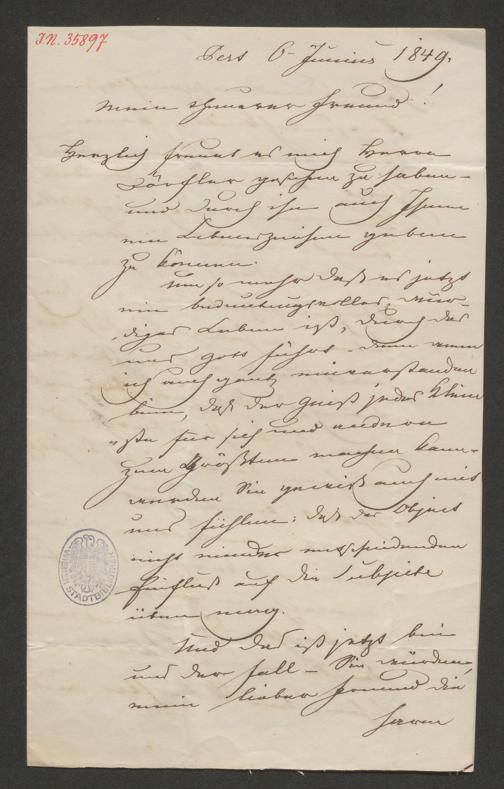 I.N. 35897
Pest 6- Junius 1849.
Mein theurer Freund!
Herzlich freut es mich Herrn
Dörfler gesehen zu haben-
und durch ihn auch Ihnen
ein Lebenszeichen geben
zu können.
Um so mehr daß es jetzt
ein bedeutungsvolles, wür-
diges Leben ist, durch das
uns Gott führt - denn wenn
ich auch ganz einverstanden
bin, daß der Geist jedes Klein
-ste für sich und andere
zum Größten machen kann-
werden Sie gewiß auch mit
uns fühlen: daß das Object
nicht minder entscheidenden
Einfluß auf die Subjecte
üben mag.
Und das ist jetzt bei
uns der Fall - Sie würden,
mein lieber Freund die
Herrn
WIENER STADTBIBLIOTHEK